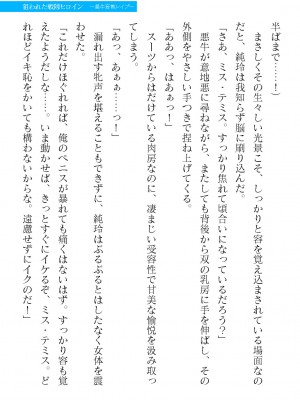 狙われた戦隊ヒロイン
半ばまで――。
まさしくその生々しい光景こそ、しっかりと容を覚え込まされている場面なの
だと、純玲は我知らず脳に刷り込んだ。
「さあ、ミス・テミス。すっかり焦れて頃合いになっているだろう？」
悪牛が意地悪に尋ねながら、またしても背後から双の乳房に手を伸ばし、その
外側をやさしい手つきで捏ね上げてくる。
「ああっ、はあっ……っ！」
スーツからはだけている肉房なのに、凄まじい受容性で甘美な愉悦を汲み取っ
てしまう。
「あっ、あぁ――っ！」
漏れ出す牝声を堪えることもできずに、純玲はぶるぶるとはしたなく女体を震
わせた。
「これだけほぐれれば、俺のペニスが暴れても痛くはないはず。すっかり容も覚
えたようだしな……。いま動かせば、きっとすぐにイケるぞ、ミス・テミス。ど
れほどイキ恥をかいても構わないからな。遠慮せずにイクのだ！」